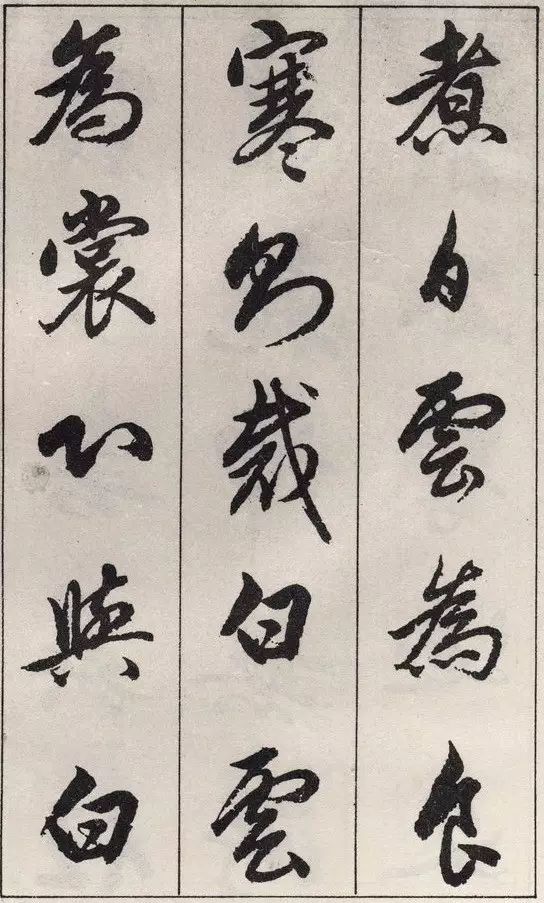 煮白雲為食
寒則裁白雲
為裳與白